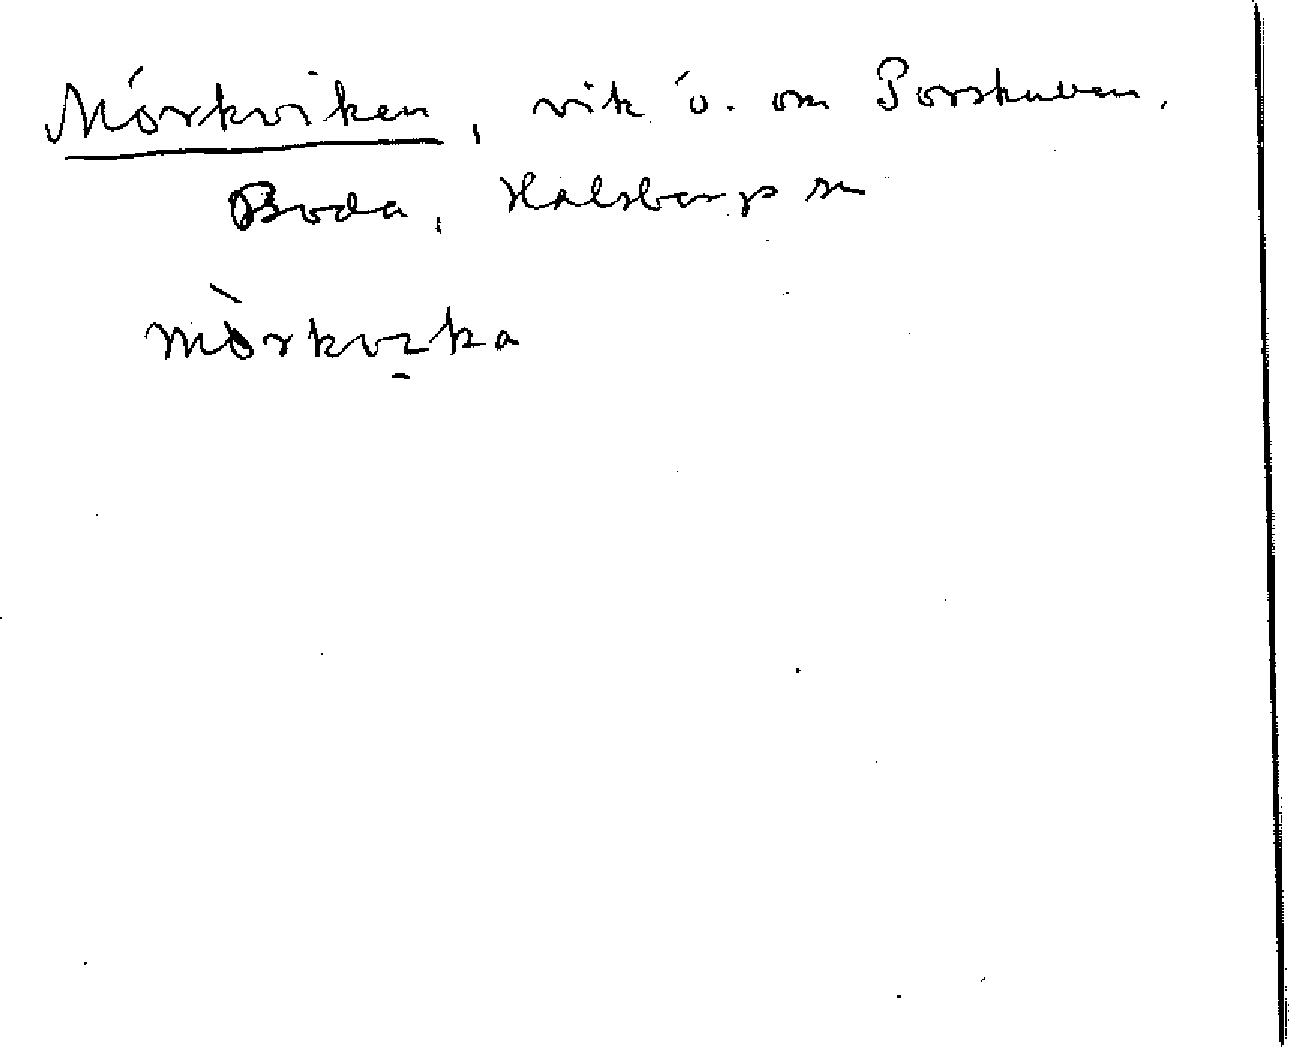 Mörkviken, vik ö. om Porskuben.
Boda, Halsbergs sn
mòrkvika